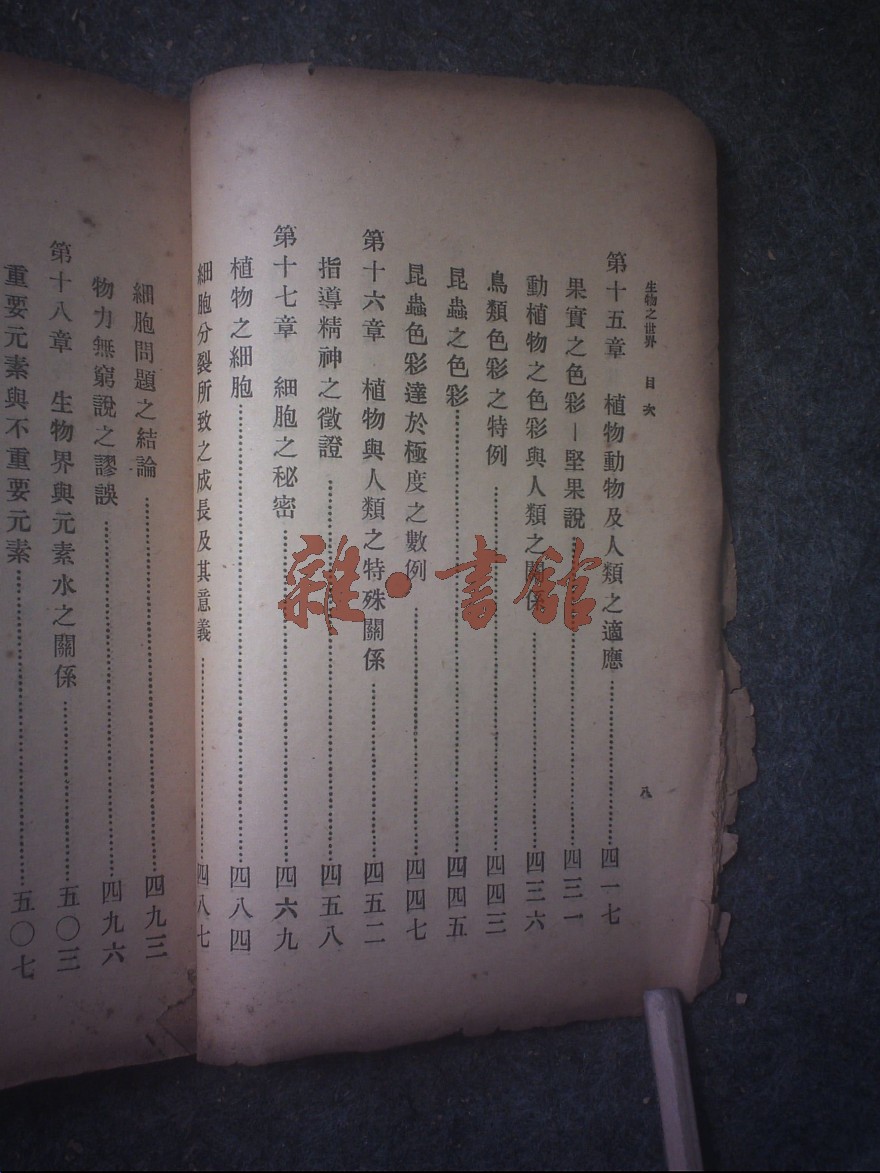 生物之世界 目次
八
第十五章 植物動物及人類之適應………四一七
果實之色彩—堅果說………四三一
動植物之色彩與人類之關係………四三六
鳥類色彩之特例………四四三
昆蟲之色彩………四四五
昆蟲色彩達於極度之數例………四四七
第十六章 植物與人類之特殊關係………四五二
指導精神之徵證………四五八
第十七章 細胞之秘密………四六九
植物之細胞………四八四
細胞分裂所致之成長及其意義………四八七
細胞問題之結論………四九三
物力無窮說之謬誤………四九六
第十八章 生物界與元素水之關係………五〇三
重要元素與不重要元素………五〇七
雜·書館